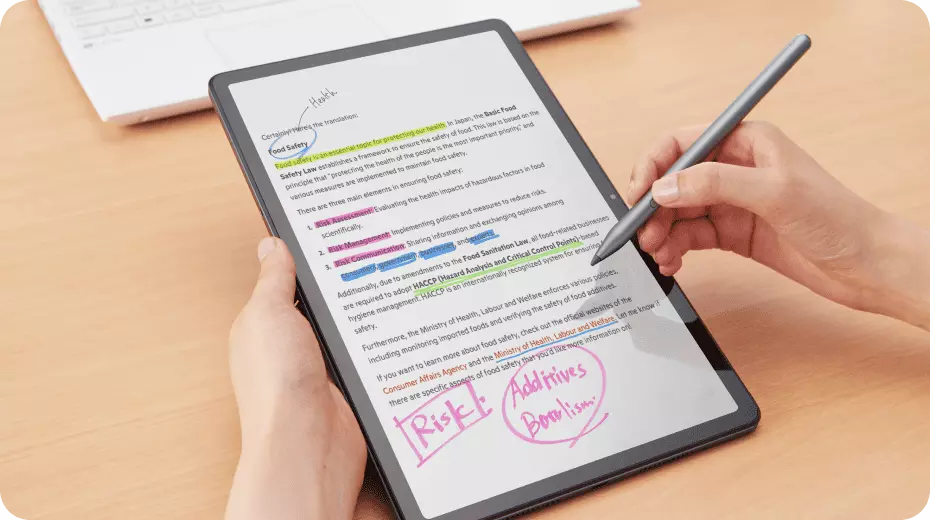 Health
Certainly! Here's the translation:
Food Safety
Food safety is an essential topic for protecting our health. In Japan, the Basic Food
Safety Law establishes a framework to ensure the safety of food. This law is based on the
principle that "protecting the health of the people is the most important priority," and
various measures are implemented to maintain food safety.
There are three main elements in ensuring food safety:
1. Risk Assessment: Evaluating the health impacts of hazardous factors in food
scientifically.
2. Risk Management: Implementing policies and measures to reduce risks.
3. Risk Communication: Sharing information and exchanging opinions among
consumers, government, businesses, and experts.
Additionally, due to amendments to the Food Sanitation Law, all food-related businesses
are required to adopt HACCP (Hazard Analysis and Critical Control Points)-based
hygiene management. HACCP is an internationally recognized system for ensuring
safety.
Furthermore, the Ministry of Health, Labour and Welfare enforces various policies,
including monitoring imported foods and verifying the safety of food additives.
If you want to learn more about food safety, check out the official websites of the
Consumer Affairs Agency and the Ministry of Health, Labour and Welfare. Let me know if
there are specific aspects of food safety that you'd like more information on!
Risk.
Additives